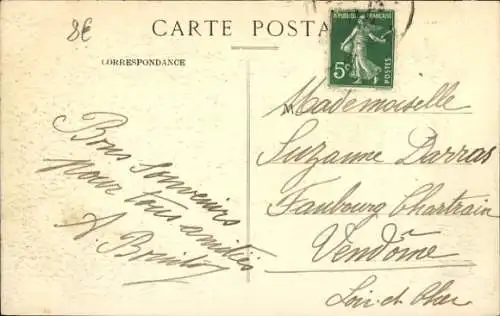 8€
CARTE POSTA
RÉPUBLIQUE FRANÇAISE
5c
POSTES
CORRESPONDANCE
M
Mademoiselle
Suzanne Darras
Faubourg Chartrain
Vendôme
Loir et Cher
Bons souvenirs
pour tous amitiés
A.